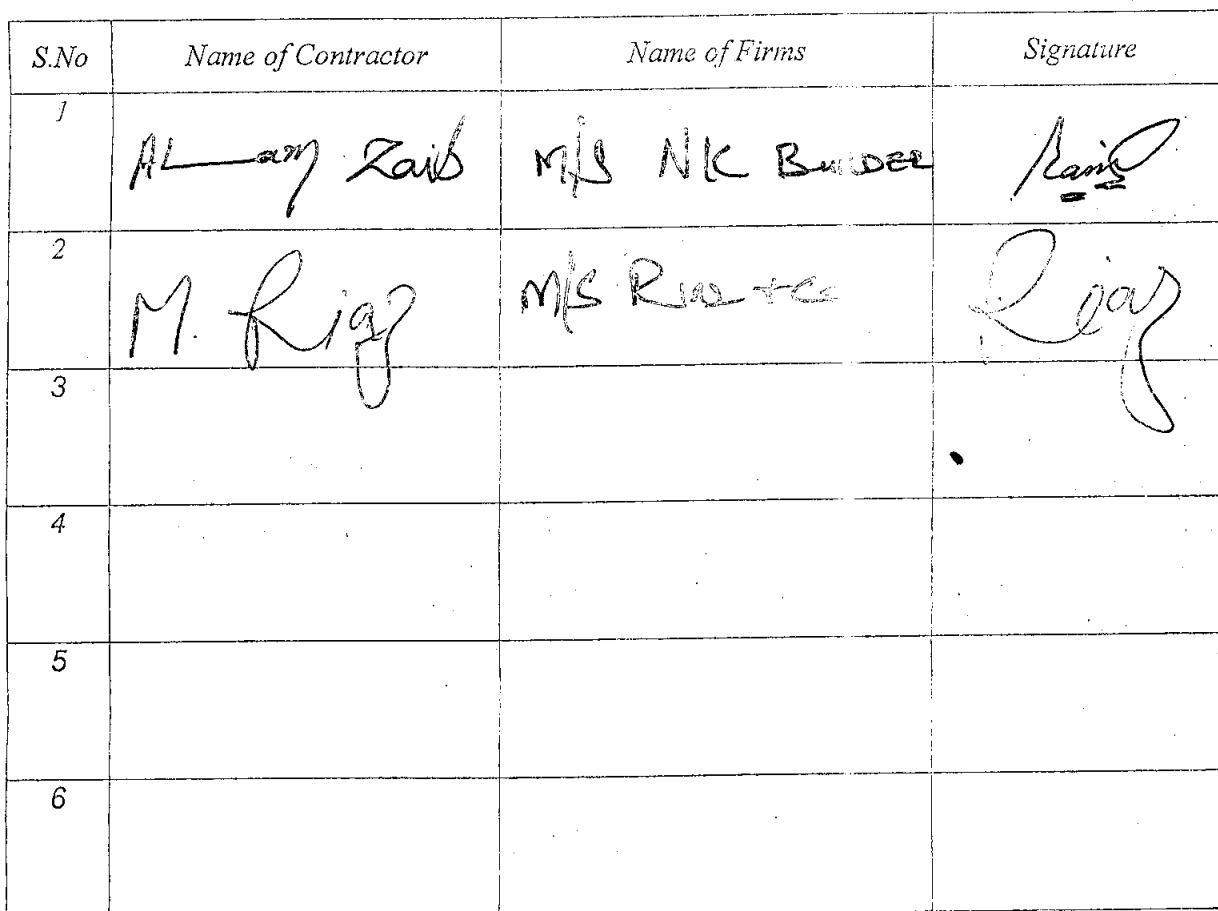 S.No Name of Contractor Name of Firms Signature
1 Zaib M/S NK BUILDER
2 M. Riaz M/S Riaz + Co Riaz
3
4
5
6